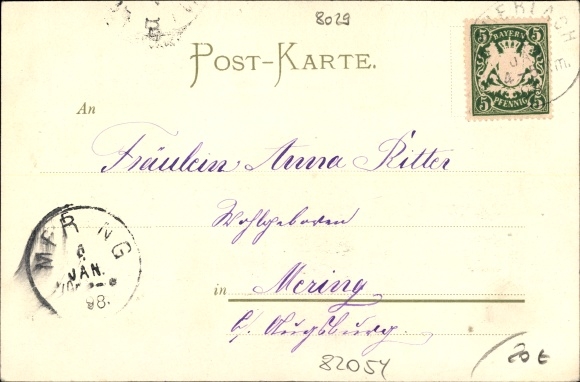 8029
POST-KARTE.
5 BAYERN 5
5 PFENNIG 5
An
Fräulein Anna Ritter
Wohlgeboren
in Mering
b/ Augsburg.
MERING
6
JAN.
98.
82054
20 €